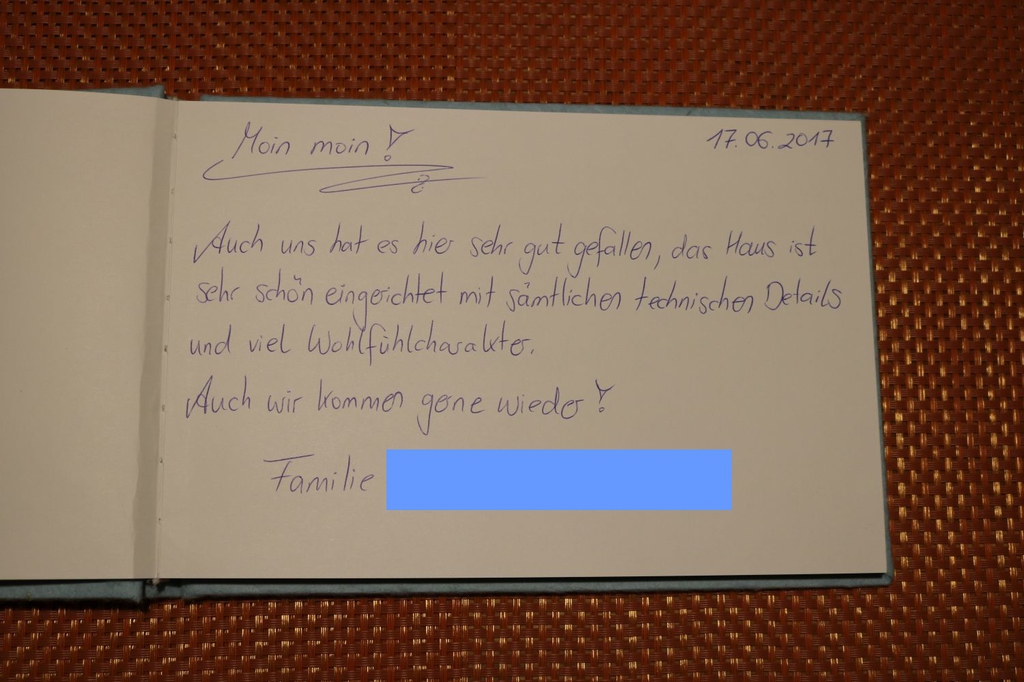 Moin moin!
17.06.2017
Auch uns hat es hier sehr gut gefallen, das Haus ist
sehr schön eingerichtet mit sämtlichen technischen Details
und viel Wohlfühlcharakter.
Auch wir kommen gerne wieder!
Familie